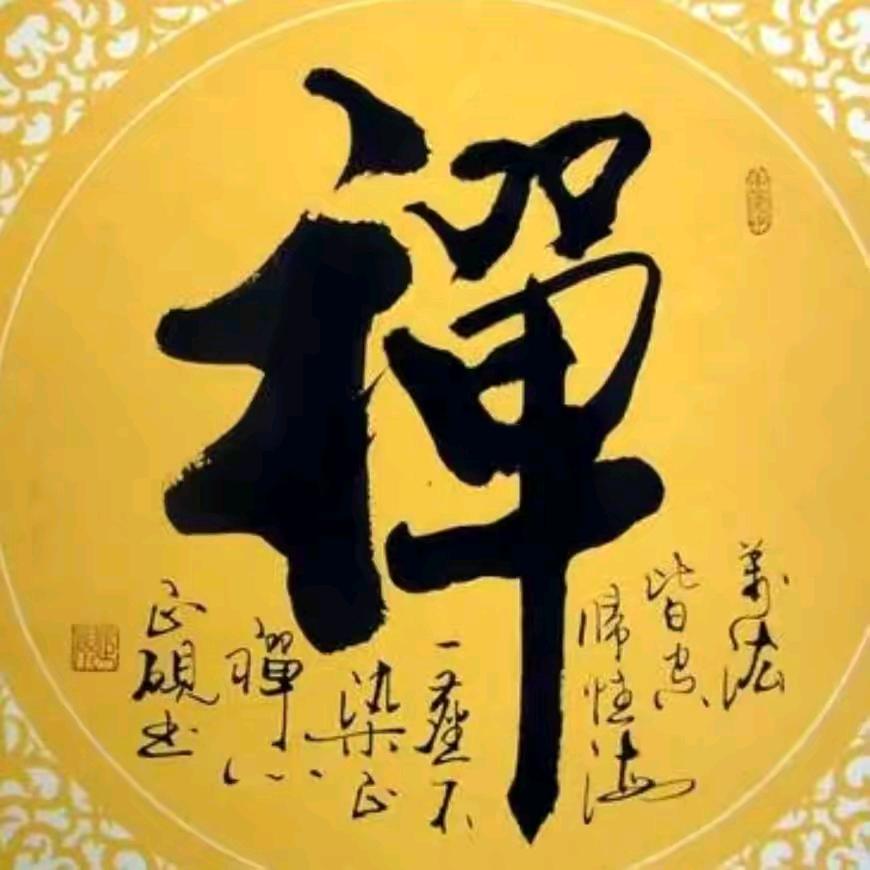 禪
萬法
皆空
歸性海
一塵不
染正
禪心
正碩书